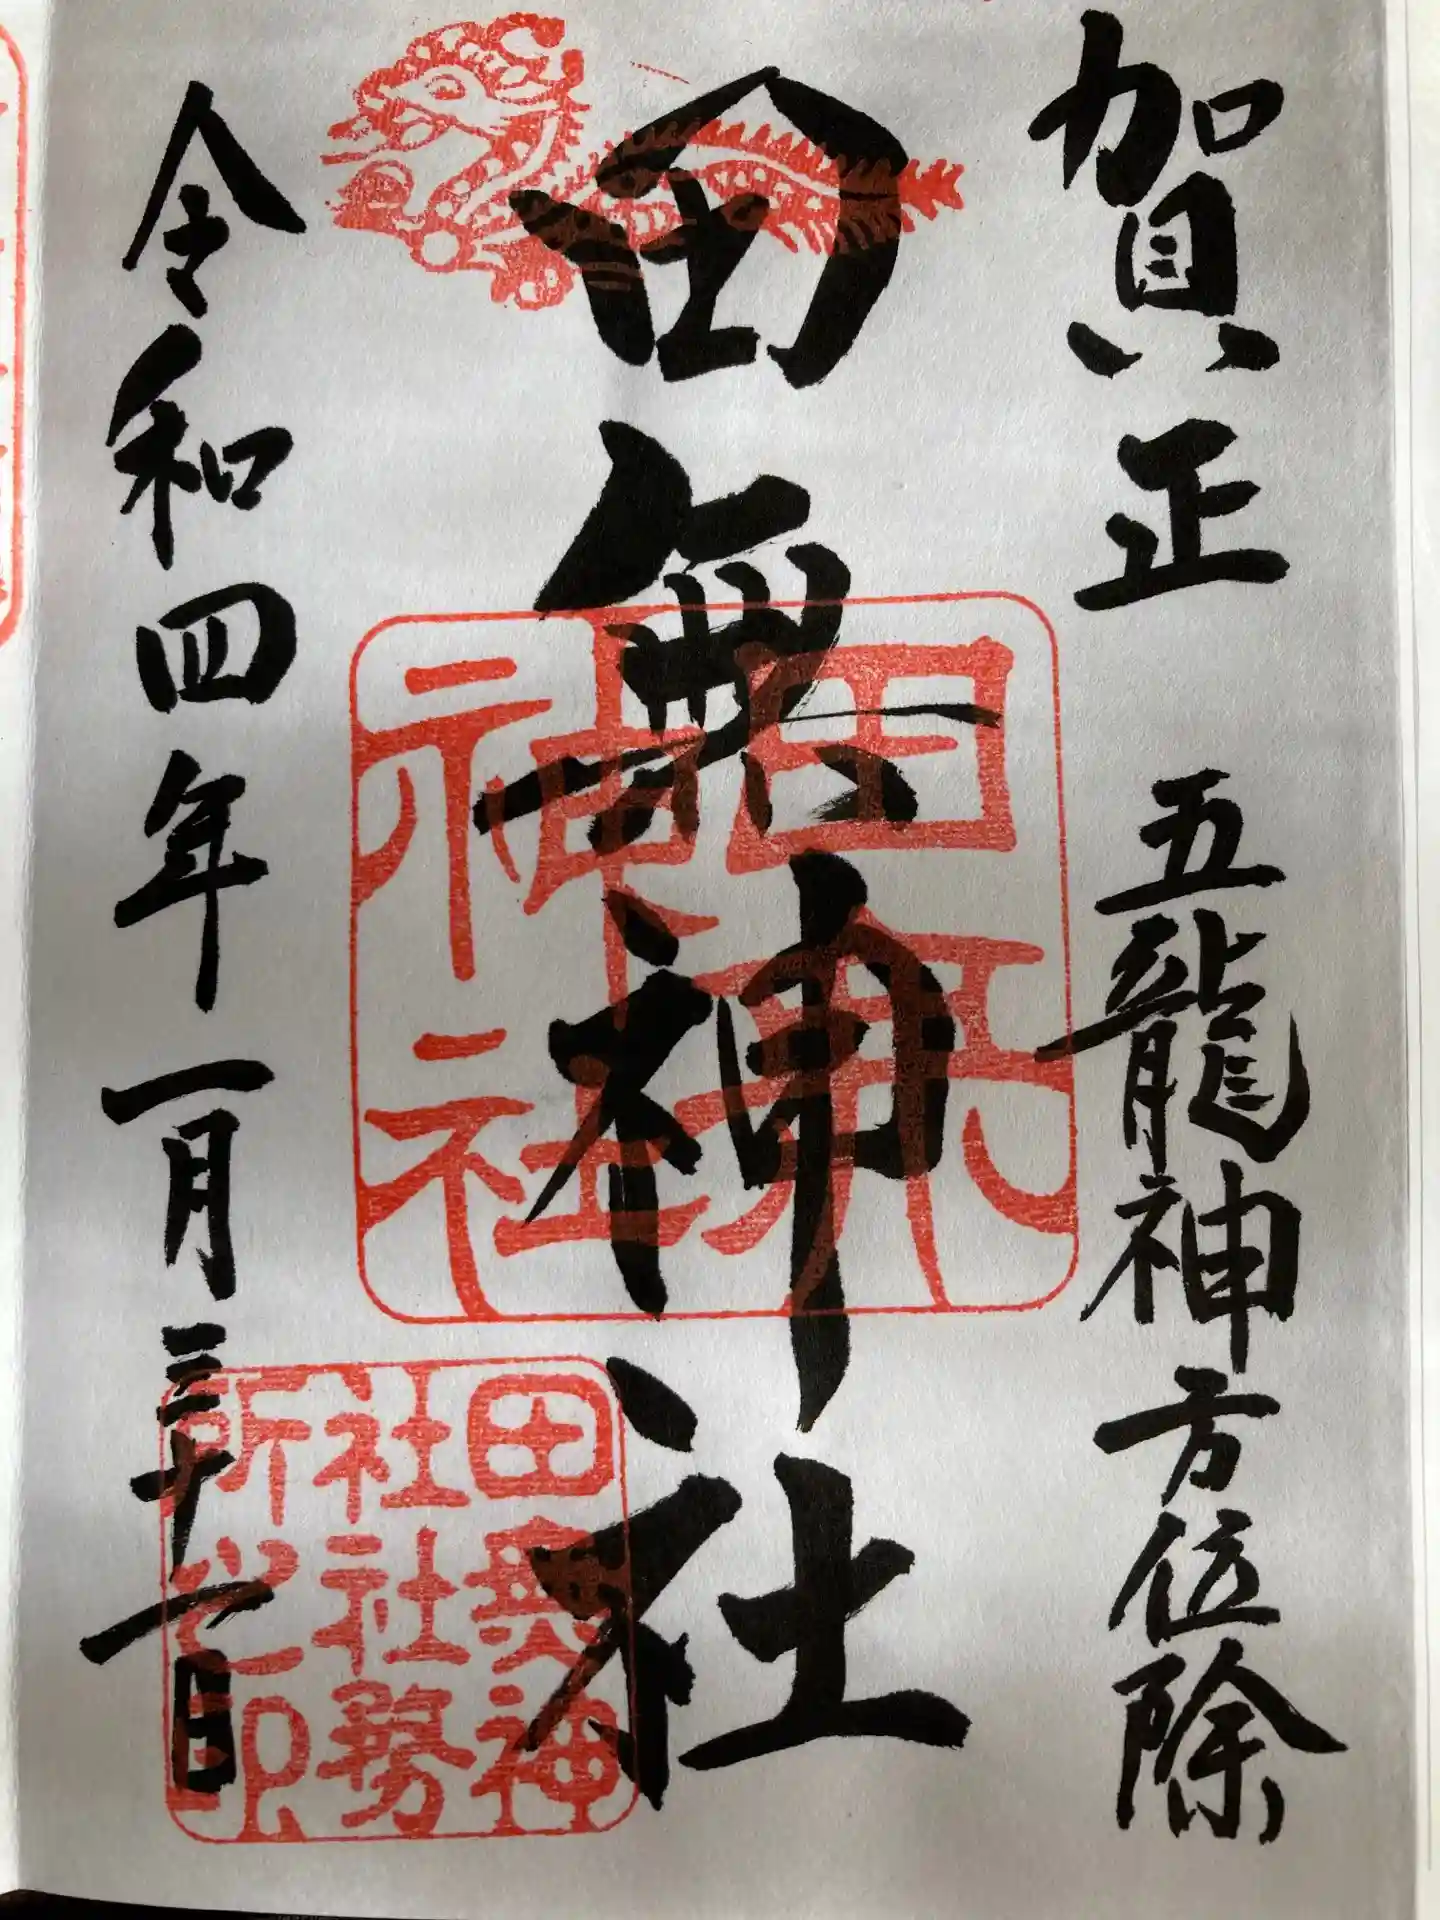 賀正 五龍神方位除
田無神社
田無神社
田無神社社務所之印
令和四年一月三十一日